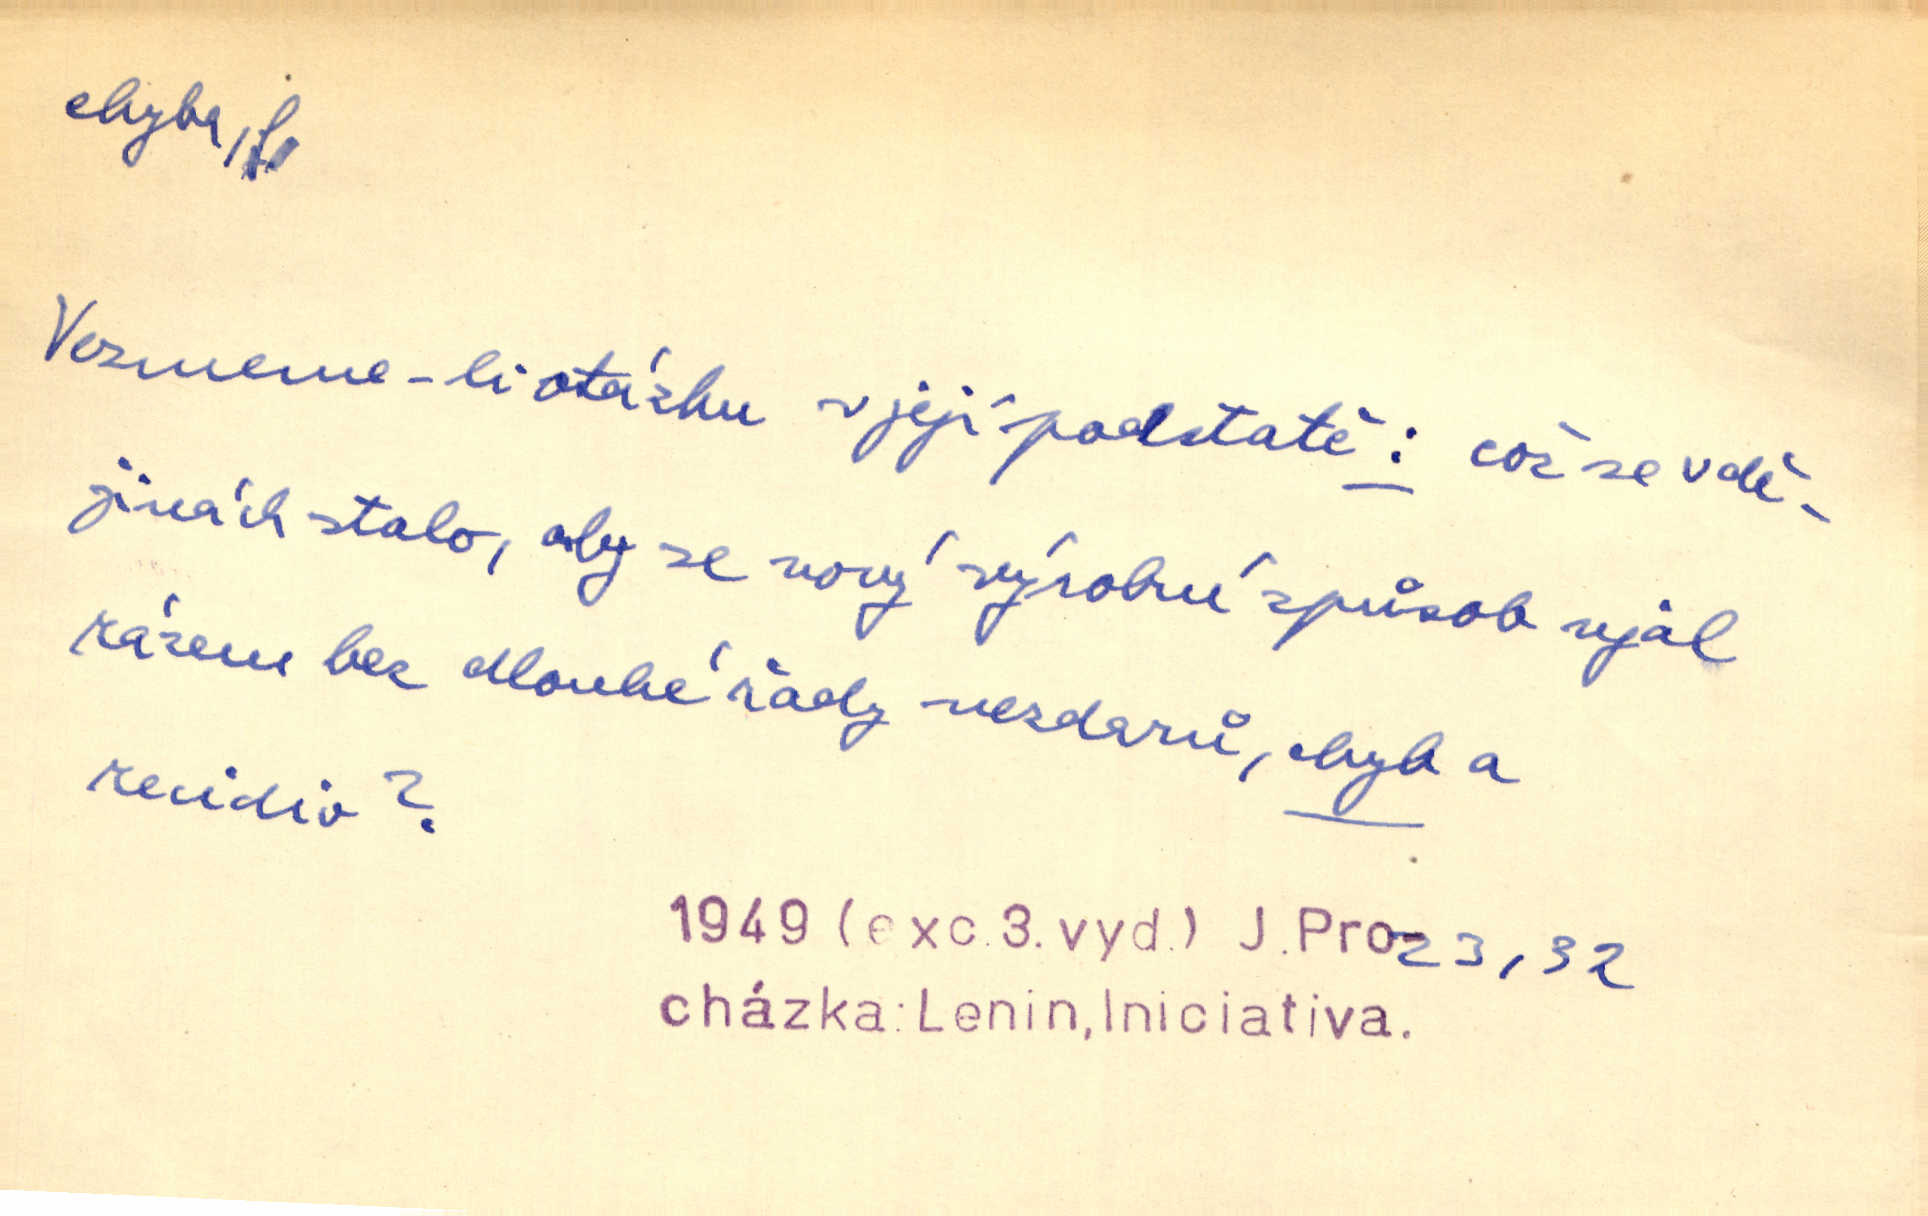 chyba, f.
Vezmeme-li otázku v její podstatě: což se v dě-
jinách stalo, aby se nový výrobní způsob ujal
rázem bez dlouhé řady nezdarů, chyb a
recidiv?
1949 (exc. 3. vyd.) J. Pro- 23, 32
cházka: Lenin, Iniciativa.